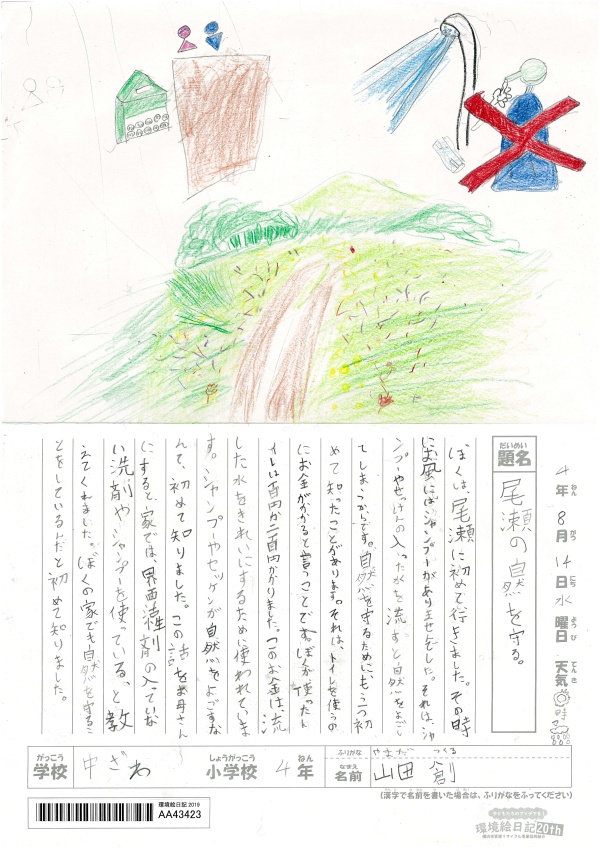 だいめい
題名
尾瀬の自然を守る。
4年 8月 14日 水曜日 天気 時々
ねん がつ にち ようび てんき
ぼくは、尾瀬に初めて行きました。その時
にお風にはシャンプーがありませんでした。それは、シャ
ンプーやせっけんの入った水を流すと自然をよごし
てしまうからです。自然を守るために、もう一つ初
めて知ったことがあります。それは、トイレを使うの
にお金がかかると言うことです。ぼくが使ったト
イレは百円か二百円かかりました。このお金は、流
した水をきれいにするために使われていま
す。シャンプーやセッケンが自然をよごすな
んて、初めて知りました。この話をお母さん
にすると、家では、界面活性剤の入っていな
い洗剤やシャンプーを使っている、と教
えてくれました。ぼくの家でも自然を守るこ
とをしているんだと初めて知りました。
がっこう しょうがっこう ねん ふりがな やまだ つくる
学校 中ざわ 小学校 4年 なまえ 名前 山田 創
(漢字で名前を書いた場合は、ふりがなをふってください)
環境絵日記 2019
AA43423
環境絵日記20th